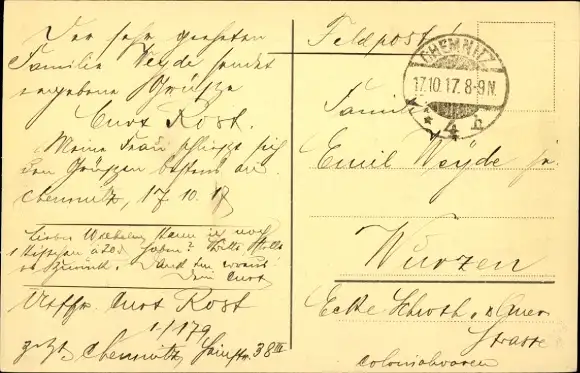 Der sehr geehrten
Familie Weyde sendet
ergebene Grüsse
Curt Rost.
Meine Frau schliesst sich
den Grüssen bestens an.
Chemnitz, 17.10.17
Lieber
haben? Bitte,
Dank im voraus!
Dein Curt
Curt Rost
1/179
Chemnitz, 38 III
Feldpost!
CHEMNITZ
17.10.17. 8-9 N.
* 4
Familie
Emil Weyde jr.
Wurzen
Ecke Schroth. u.
Strasse
Colonialwaren